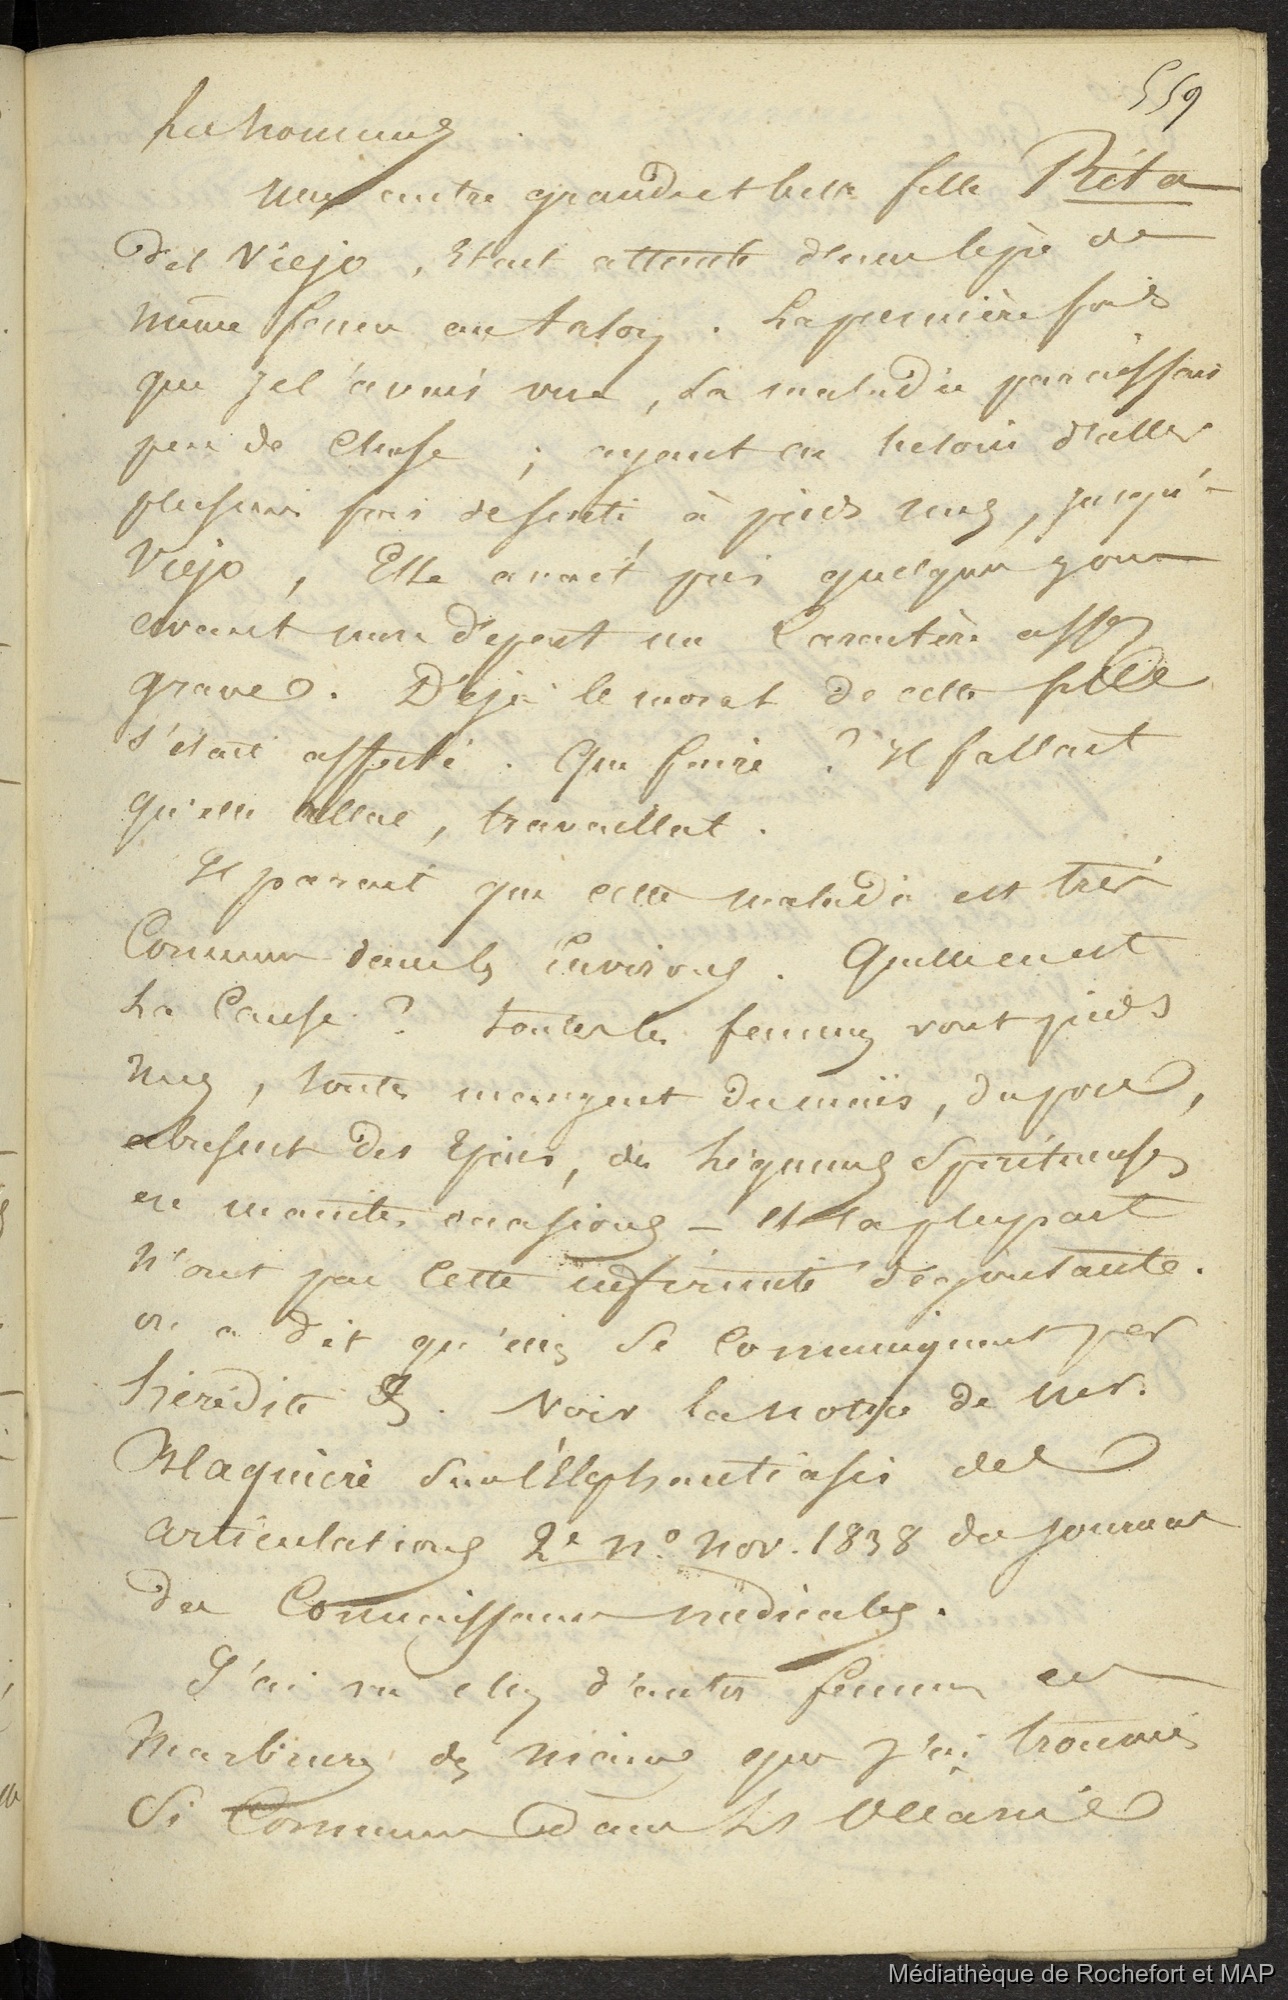 559
les hommes
Une autre grande et belle fille Rita
del Viejo, était atteinte d'une lèpre de
même genre au talon. La première fois
que je l'avais vue, la maladie paraissait
peu de chose ; ayant eu besoin d'aller
plusieurs fois de suite, à pieds nus, jusqu'à
Viejo, Elle avait pris quelques jours
avant mon départ un Caractère assez
grave. Déjà le moral de cette fille
s'était affecté. Que faire ? Il fallait
qu'elle allat, travaillat.
Il parait que cette maladie est très
Commune dans les Environs. Quelle en est
La Cause ? toutes les femmes vont pieds
nus, toutes mangent du maïs, du porc,
abusent des Epices, des liqueurs Spiritueuses
en maintes occasions _ et la plupart
n'ont pas Cette infirmité dégoutante.
on a dit qu'elles se Communiquent par
hérédité &. Voir la notice de Mr.
Blaquière Sur l'Elephantiasis des
articulations 2e no. Nov. 1838 du journal
des Connaissances médicales.
J'ai vu chez d'autres femmes et
que j'ai trouvés
Si Communs dans les Océanie